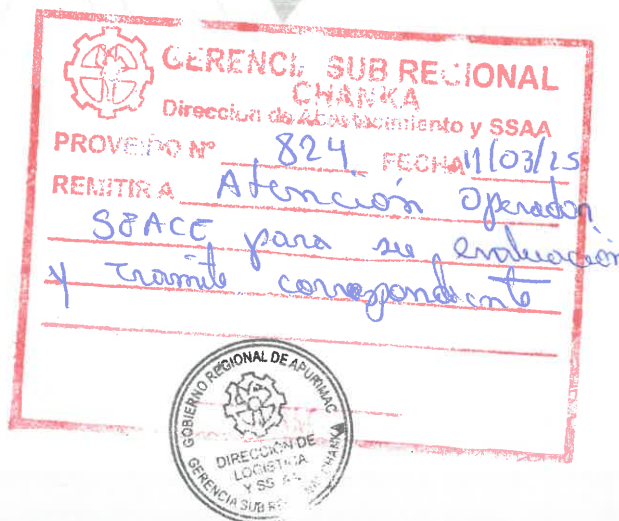 GERENCIA SUB REGIONAL
CHANKA
Direccion de Abastecimiento y SSAA
PROVEIDO Nº 824 FECHA 11/03/25
REMITIR A Atención Operador
SEACE para su evaluación
y tramite correspondiente
GOBIERNO REGIONAL DE APURIMAC
DIRECCIÓN DE
LOGISTICA
Y SS
GERENCIA SUB REGIONAL CHANKA